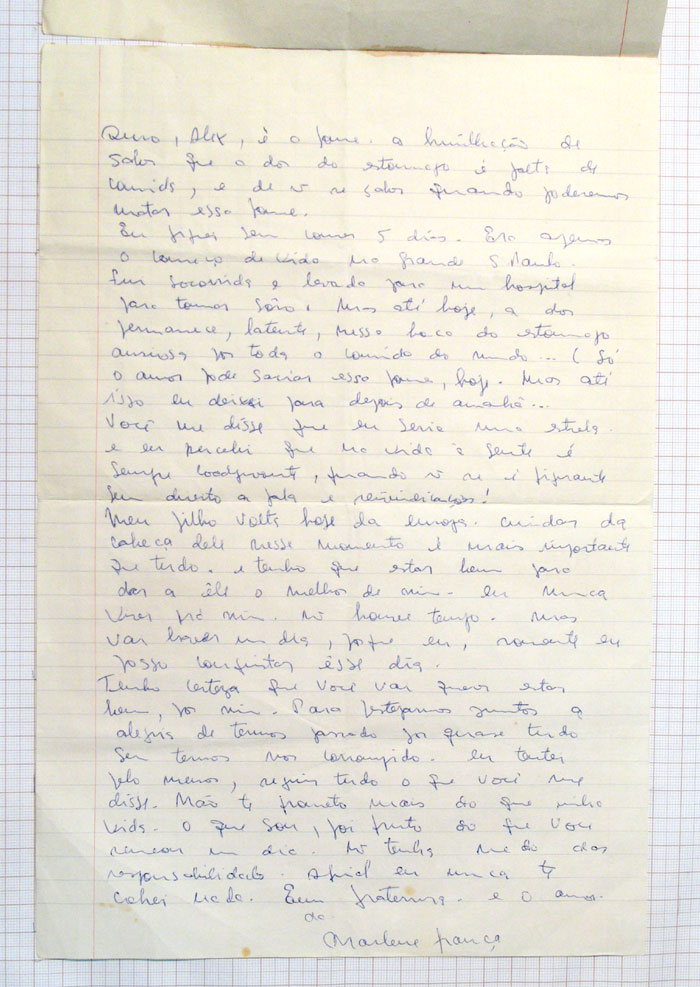 Alex, é a fome. a humilhação de
saber que a dor do estomago é falta de
comida, e de ñ se saber quando poderemos
matar essa fome.
Eu fiquei sem comer 5 dias. Era apenas
o começo de vida na grande S Paulo.
Fui socorrida e levada para um hospital
para tomar sôro. Mas até hoje, a dor
permanece, latente, nessa boca do estomago
ansiosa por toda a comida do mundo... (Só
o amor pode saciar essa fome, hoje. Mas até
isso eu deixei para depois de amanhã...
Você me disse que eu seria uma estrela
e eu percebi que na vida a gente é
sempre coadjuvante, quando ñ se é figurante
sem direito a fala e reinvindicações!
Meu filho volta hoje da europa. cuidar da
cabeça dele nesse momento é mais importante
que tudo. e tenho que estar bem para
dar a êle o melhor de mim. eu nunca
vivi prá mim. ñ houve tempo. mas
vai haver um dia, porque eu, somente eu
posso conquistar êsse dia.
Tenho certeza que você vai querer estar
bem, por mim. Para festejarmos juntos a
alegria de termos passado por quase tudo
sem termos nos corrompido. eu tentei
pelo menos, seguir tudo o que você me
disse. Não te prometo mais do que minha
vida. O que sou, foi fruto do que você
um dia. Ñ tenha medo das
responsabilidades. Afinal eu nunca te
cobrei nada. e o amor.
da
Marlene França